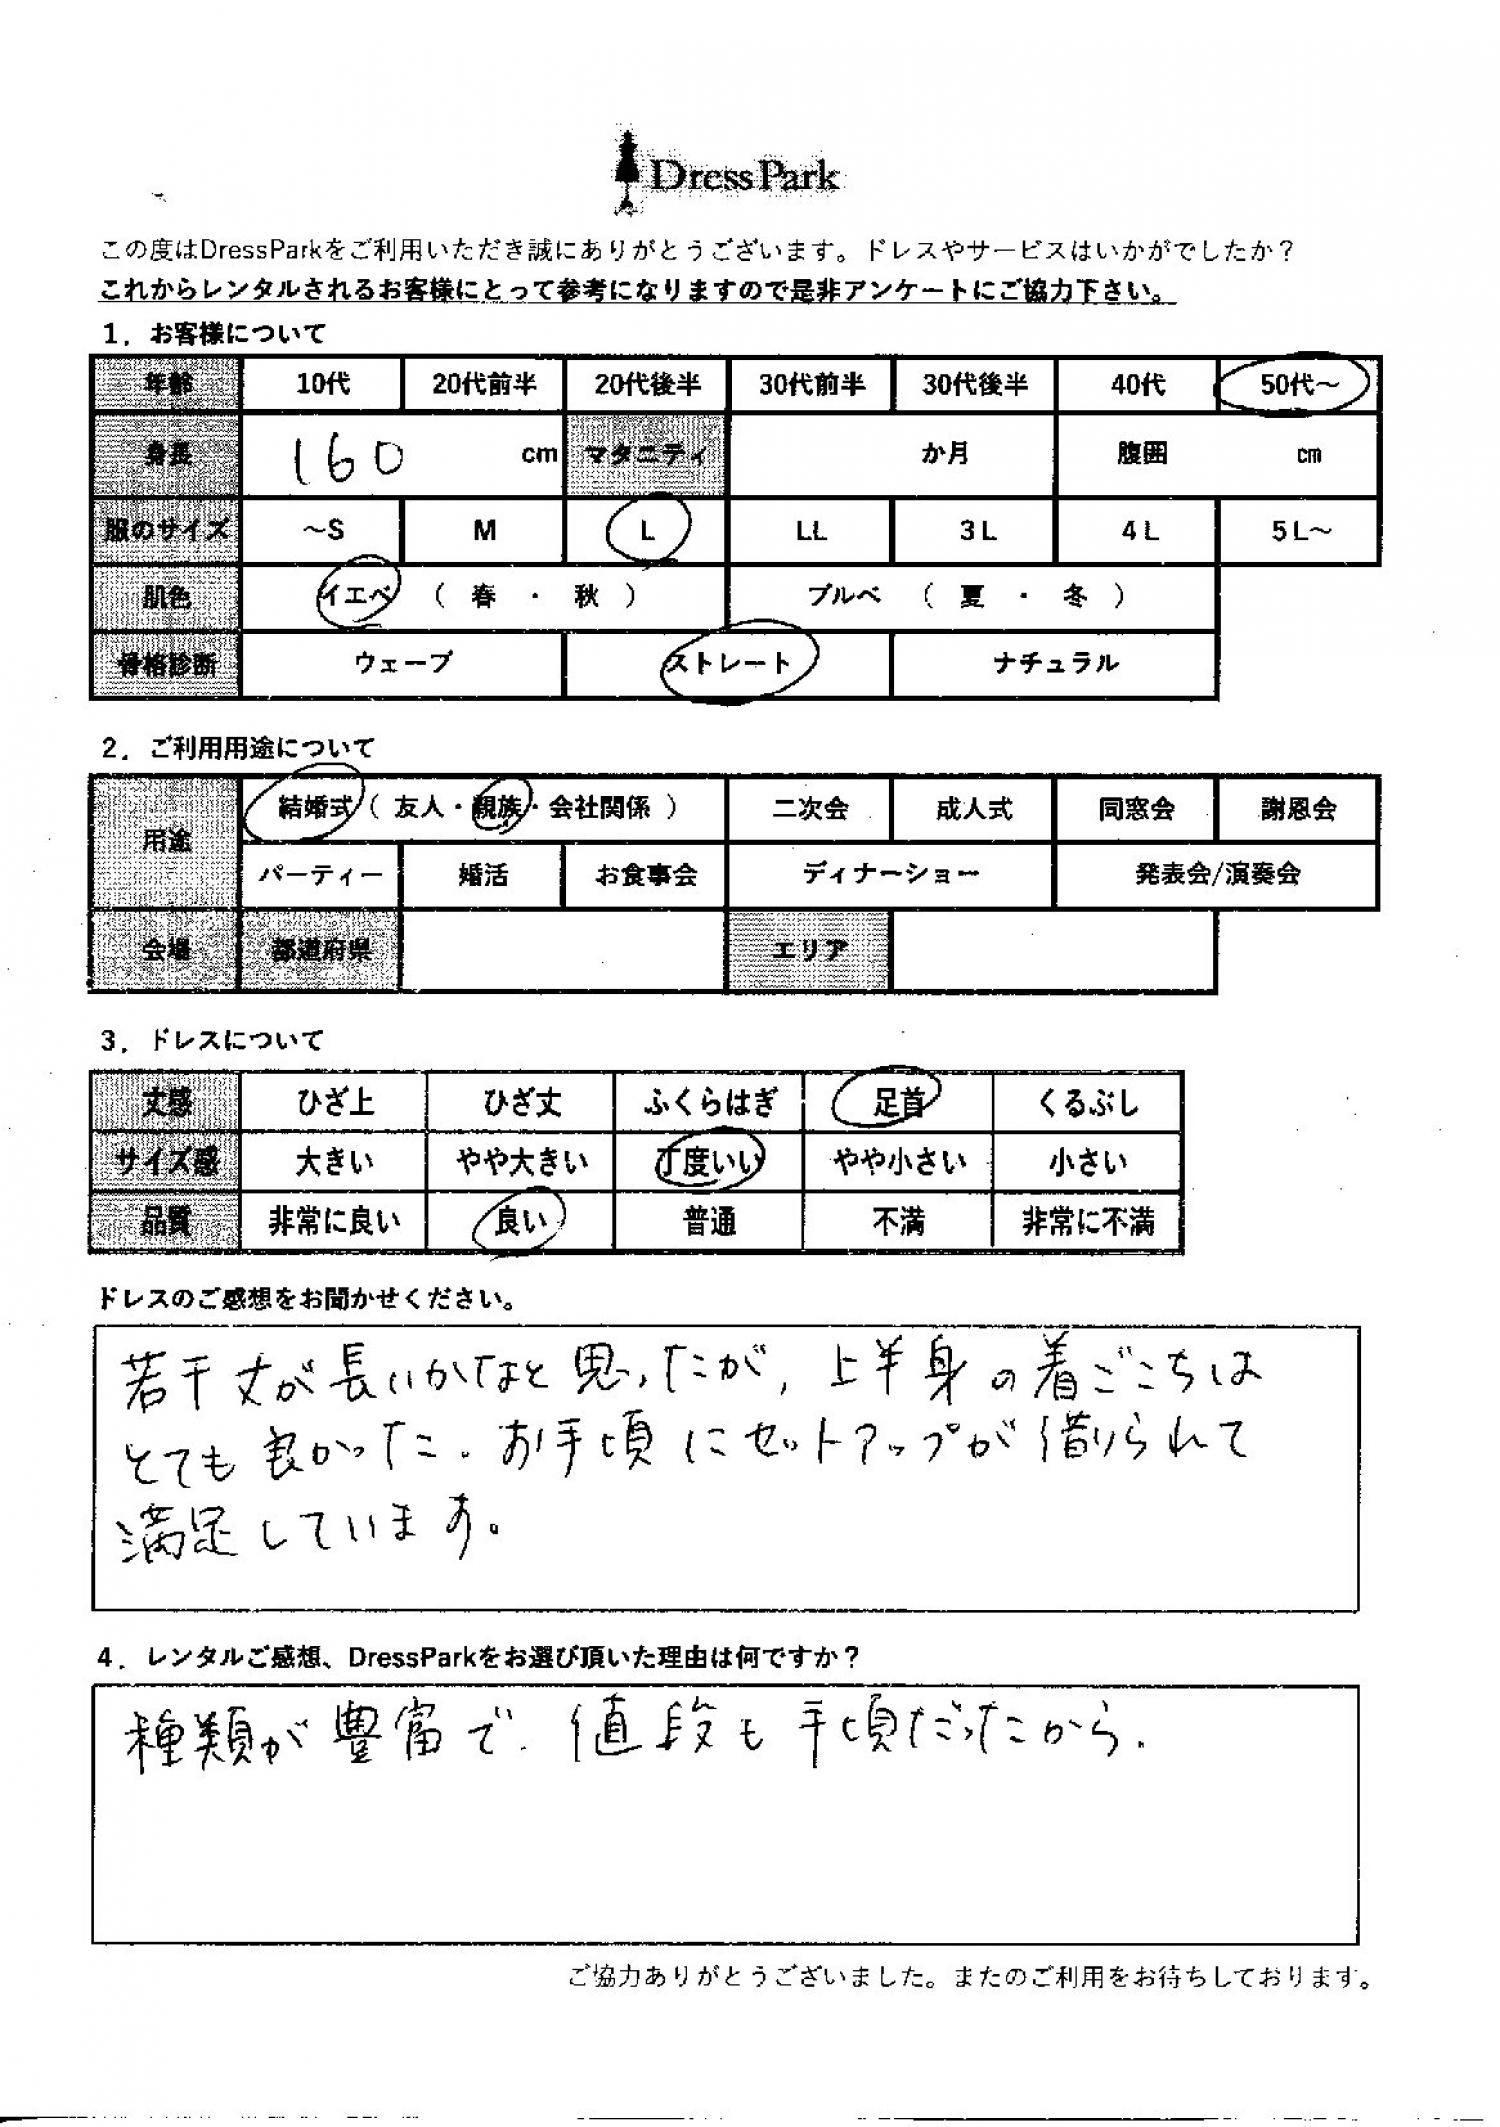 DressPark
この度はDressParkをご利用いただき誠にありがとうございます。ドレスやサービスはいかがでしたか？
これからレンタルされるお客様にとって参考になりますので是非アンケートにご協力下さい。
1．お客様について
年齢 10代 20代前半 20代後半 30代前半 30代後半 40代 50代～
身長 160 cm マタニティ か月 腹囲 cm
服のサイズ ～S M L LL 3L 4L 5L～
肌色 イエベ （ 春 ・ 秋 ） ブルベ （ 夏 ・ 冬 ）
骨格診断 ウェーブ ストレート ナチュラル
2．ご利用用途について
用途 結婚式（ 友人・親族・会社関係 ） 二次会 成人式 同窓会 謝恩会
パーティー 婚活 お食事会 ディナーショー 発表会/演奏会
会場 都道府県 エリア
3．ドレスについて
丈感 ひざ上 ひざ丈 ふくらはぎ 足首 くるぶし
サイズ感 大きい やや大きい 丁度いい やや小さい 小さい
品質 非常に良い 良い 普通 不満 非常に不満
ドレスのご感想をお聞かせください。
若干丈が長いかなと思ったが、上半身の着ごこちは
とても良かった。お手頃にセットアップが借りられて
満足しています。
4．レンタルご感想、DressParkをお選び頂いた理由は何ですか？
種類が豊富で、値段も手頃だったから。
ご協力ありがとうございました。またのご利用をお待ちしております。